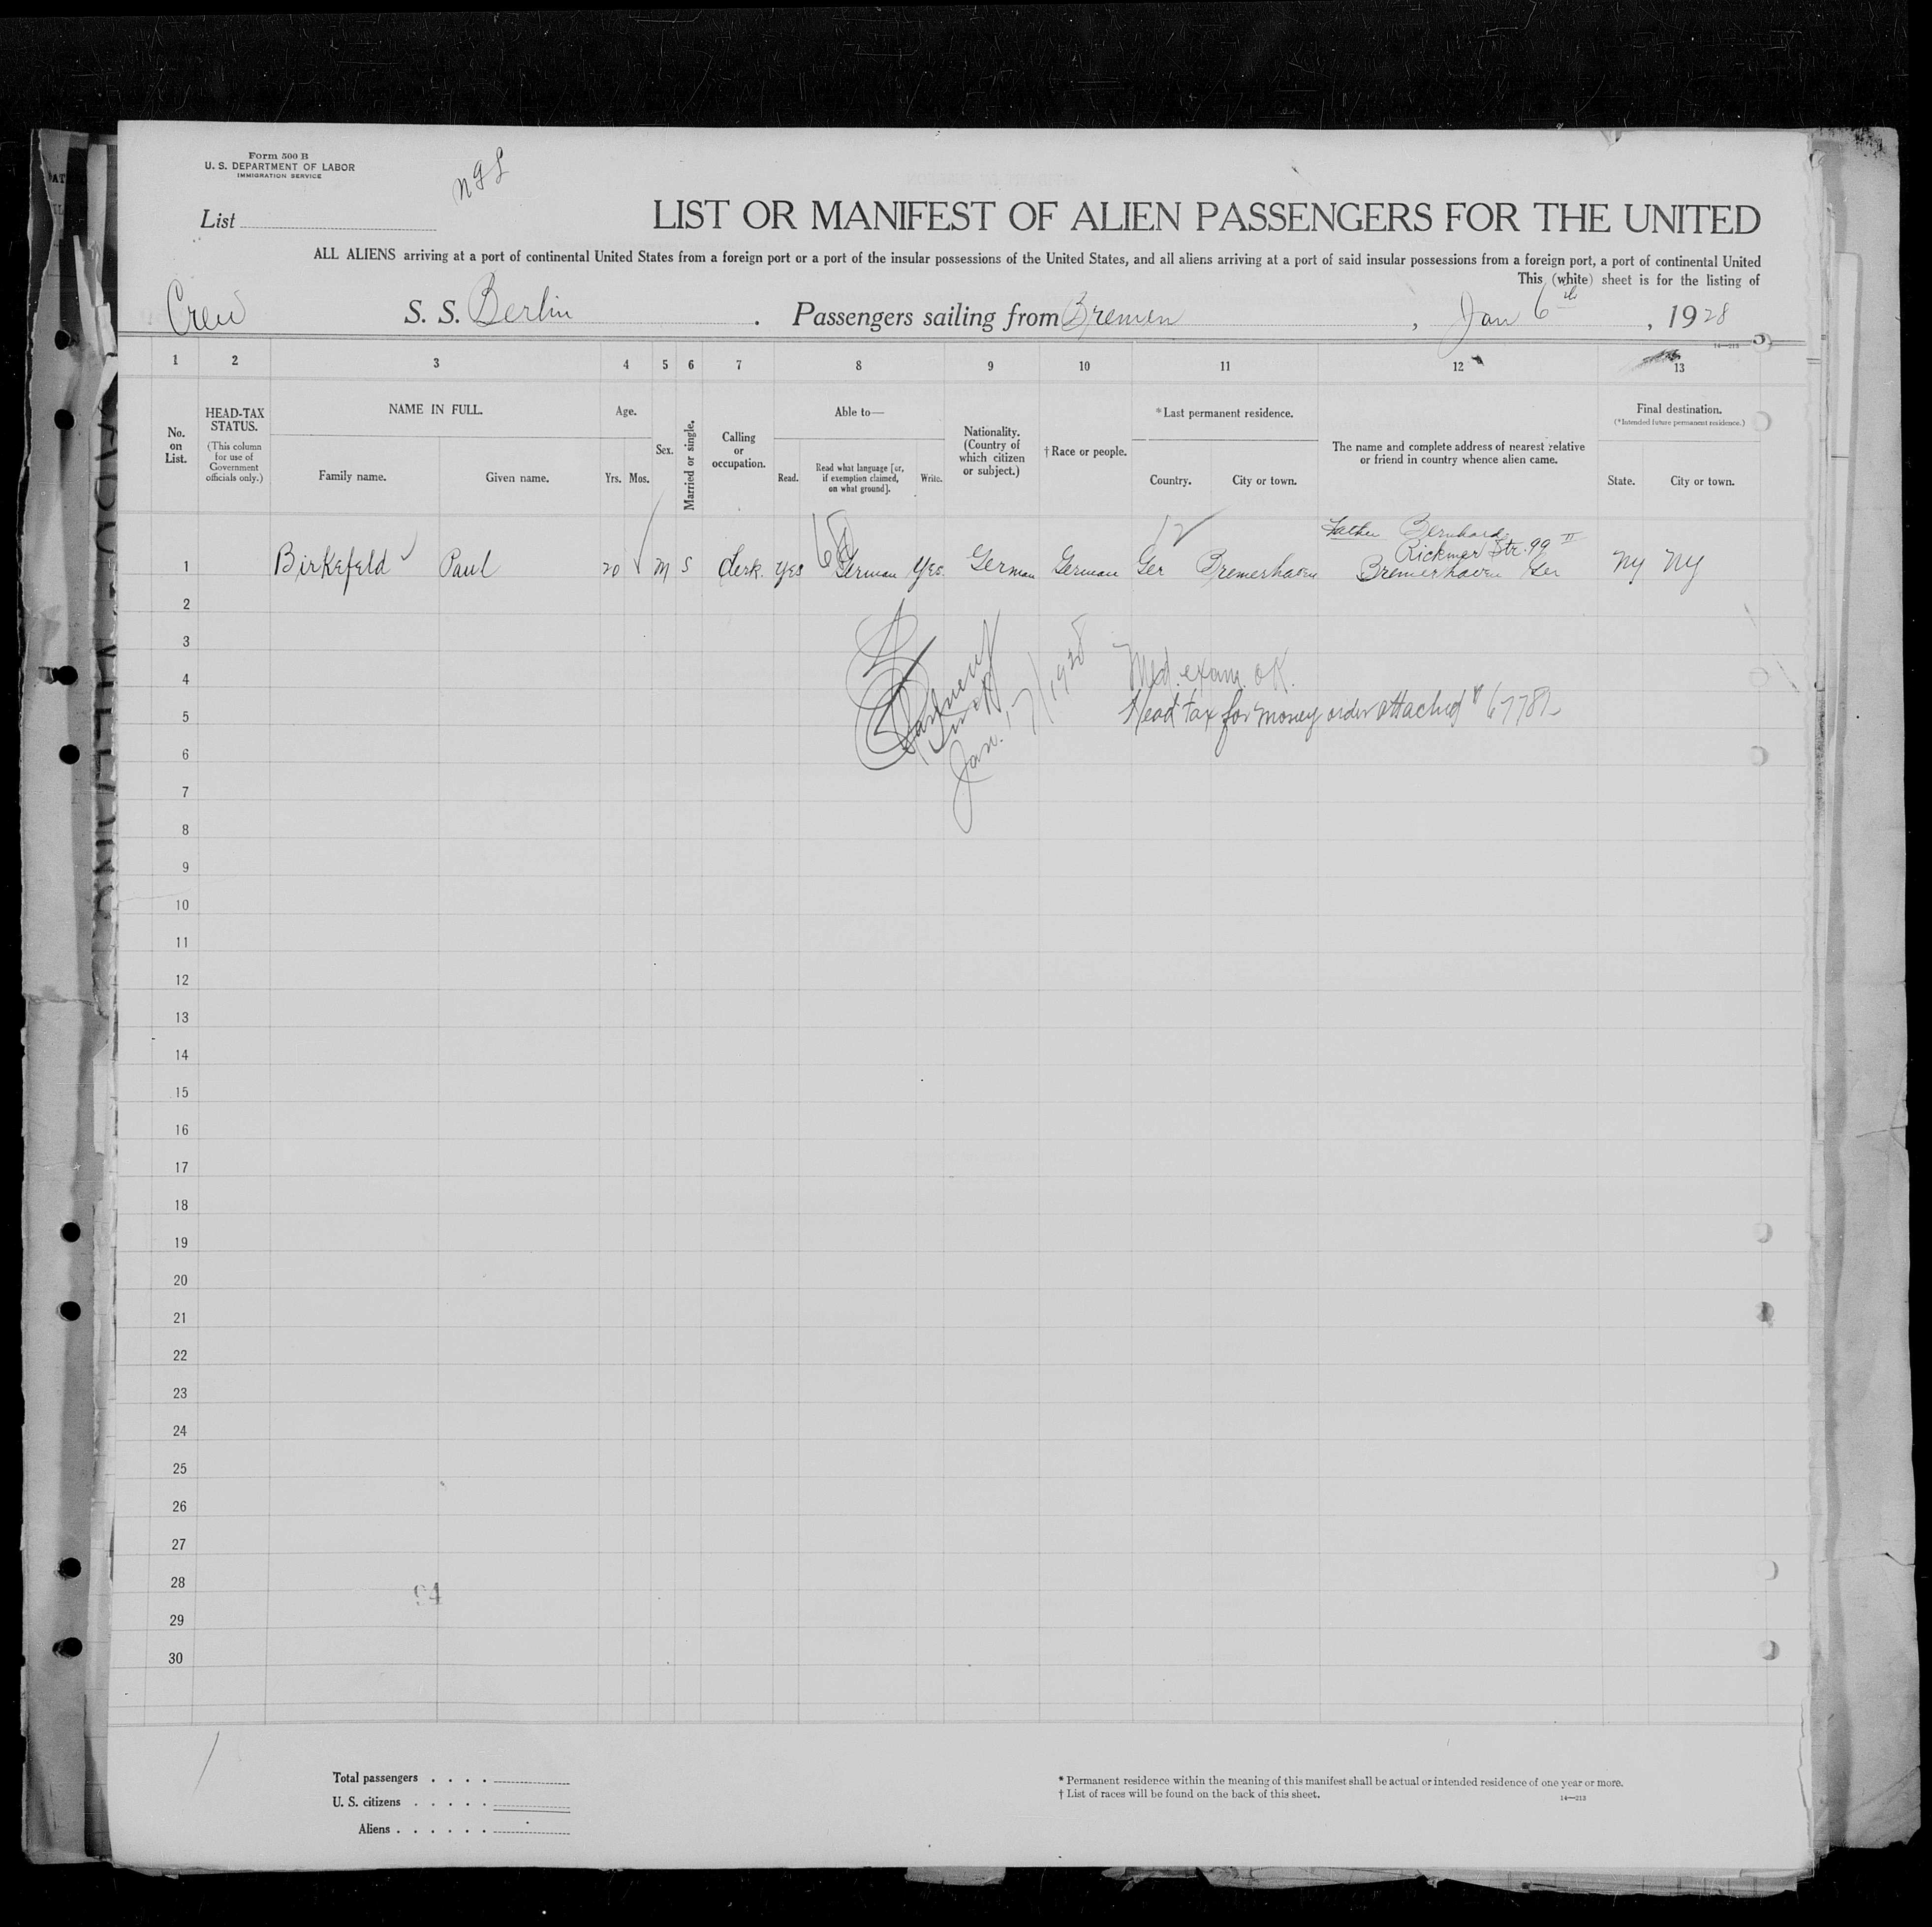 Form 500 B
U. S. DEPARTMENT OF LABOR
IMMIGRATION SERVICE
List
LIST OR MANIFEST OF ALIEN PASSENGERS FOR THE UNITED
ALL ALIENS arriving at a port of continental United States from a foreign port or a port of the insular possessions of the United States, and all aliens arriving at a port of said insular possessions from a foreign port, a port of continental United
This (white) sheet is for the listing of
Crew S. S. Berlin . Passengers sailing from Bremen , Jan 6th , 1928
14—213
1 2 3 4 5 6 7 8 9 10 11 12 13
No. on List.
HEAD-TAX STATUS.
(This column for use of Government officials only.)
NAME IN FULL.
Family name. Given name.
Age.
Yrs. Mos.
Sex.
Married or single.
Calling or occupation.
Able to—
Read. Read what language [or, if exemption claimed, on what ground]. Write.
Nationality. (Country of which citizen or subject.)
† Race or people.
* Last permanent residence.
Country. City or town.
The name and complete address of nearest relative or friend in country whence alien came.
Final destination.
(* Intended future permanent residence.)
State. City or town.
Father Bernhard
Rickmer Str. 99 II
1 Birkefeld Paul 20 M S Clerk. Yes German Yes. German German Ger Bremerhaven Bremerhaven Ger NY NY
2
3
Med. exam. OK.
4
Head tax for money order attached # 67781
5
Jan. 17/1928
6
7
8
9
10
11
12
13
14
15
16
17
18
19
20
21
22
23
24
25
26
27
28
94
29
30
Total passengers . . . .
U. S. citizens . . . . .
Aliens . . . . . .
* Permanent residence within the meaning of this manifest shall be actual or intended residence of one year or more.
† List of races will be found on the back of this sheet.
14—213